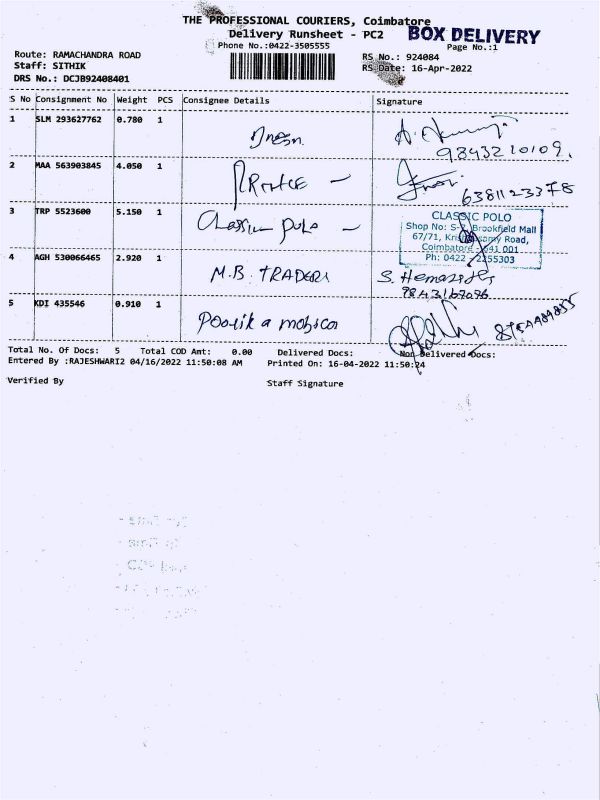 THE PROFESSIONAL COURIERS, Coimbatore
Delivery Runsheet - PC2
BOX DELIVERY
Phone No.:0422-3505555
Page No.:1
Route: RAMACHANDRA ROAD
RS No.: 924084
Staff: SITHIK
RS Date: 16-Apr-2022
DRS No.: DCJB92408401
S No Consignment No Weight PCS Consignee Details Signature
1 SLM 293627762 0.780 1
9843210109.
2 MAA 563903845 4.050 1
6381123378
3 TRP 5523600 5.150 1 Classic polo
CLASSIC POLO
Shop No: Brookfield Mall
67/71, Road,
Coimbatore - 641 001
Ph: 0422 - 2255303
4 AGH 530066465 2.920 1 M.B. TRADERS S.
5 KDI 435546 0.910 1
Total No. Of Docs: 5 Total COD Amt: 0.00 Delivered Docs: Non Delivered Docs:
Entered By :RAJESHWARI2 04/16/2022 11:50:08 AM Printed On: 16-04-2022 11:50:24
Verified By Staff Signature